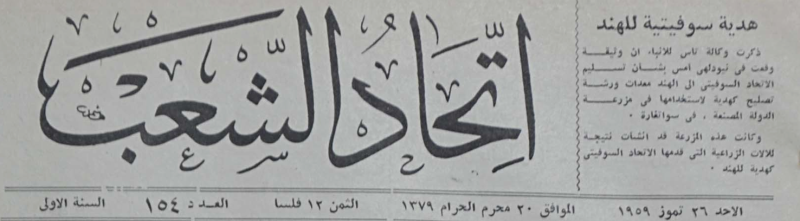 هدية سوفيتية للهند
ذكرت وكالة تاس للانباء ان وثيقة
وقعت في نيودلهي امس بشان تسليم
الاتحاد السوفيتي الى الهند معدات ورشة
تصليح كهدية لاستخدامها في مزرعة
الدولة المصنعة ، في سوانقارة ٠
وكانت هذه المزرعة قد انشات نتيجة
للالات الزراعية التي قدمها الاتحاد السوفيتي
كهدية للهند ٠
اتحاد الشعب
الاحد ٢٦ تموز ١٩٥٩ الموافق ٢٠ محرم الحرام ١٣٧٩ الثمن ١٢ فلسا العدد ١٥٤ السنة الاولى